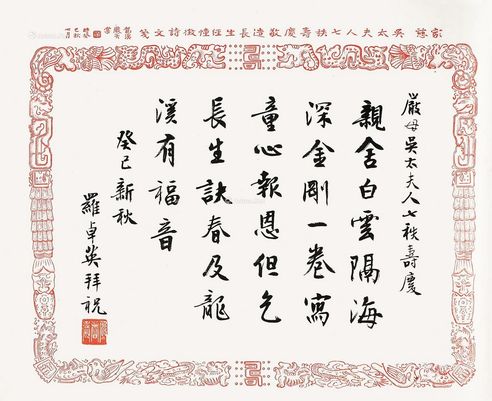 家慈 吳太夫人七秩壽慶敬造長生徵詩文箋
嚴母吳太夫人七秩壽慶
親舍白雲隔海
深金剛一卷寫
童心報恩但乞
長生訣春及龍
溪有福音
癸巳新秋
羅卓英拜祝